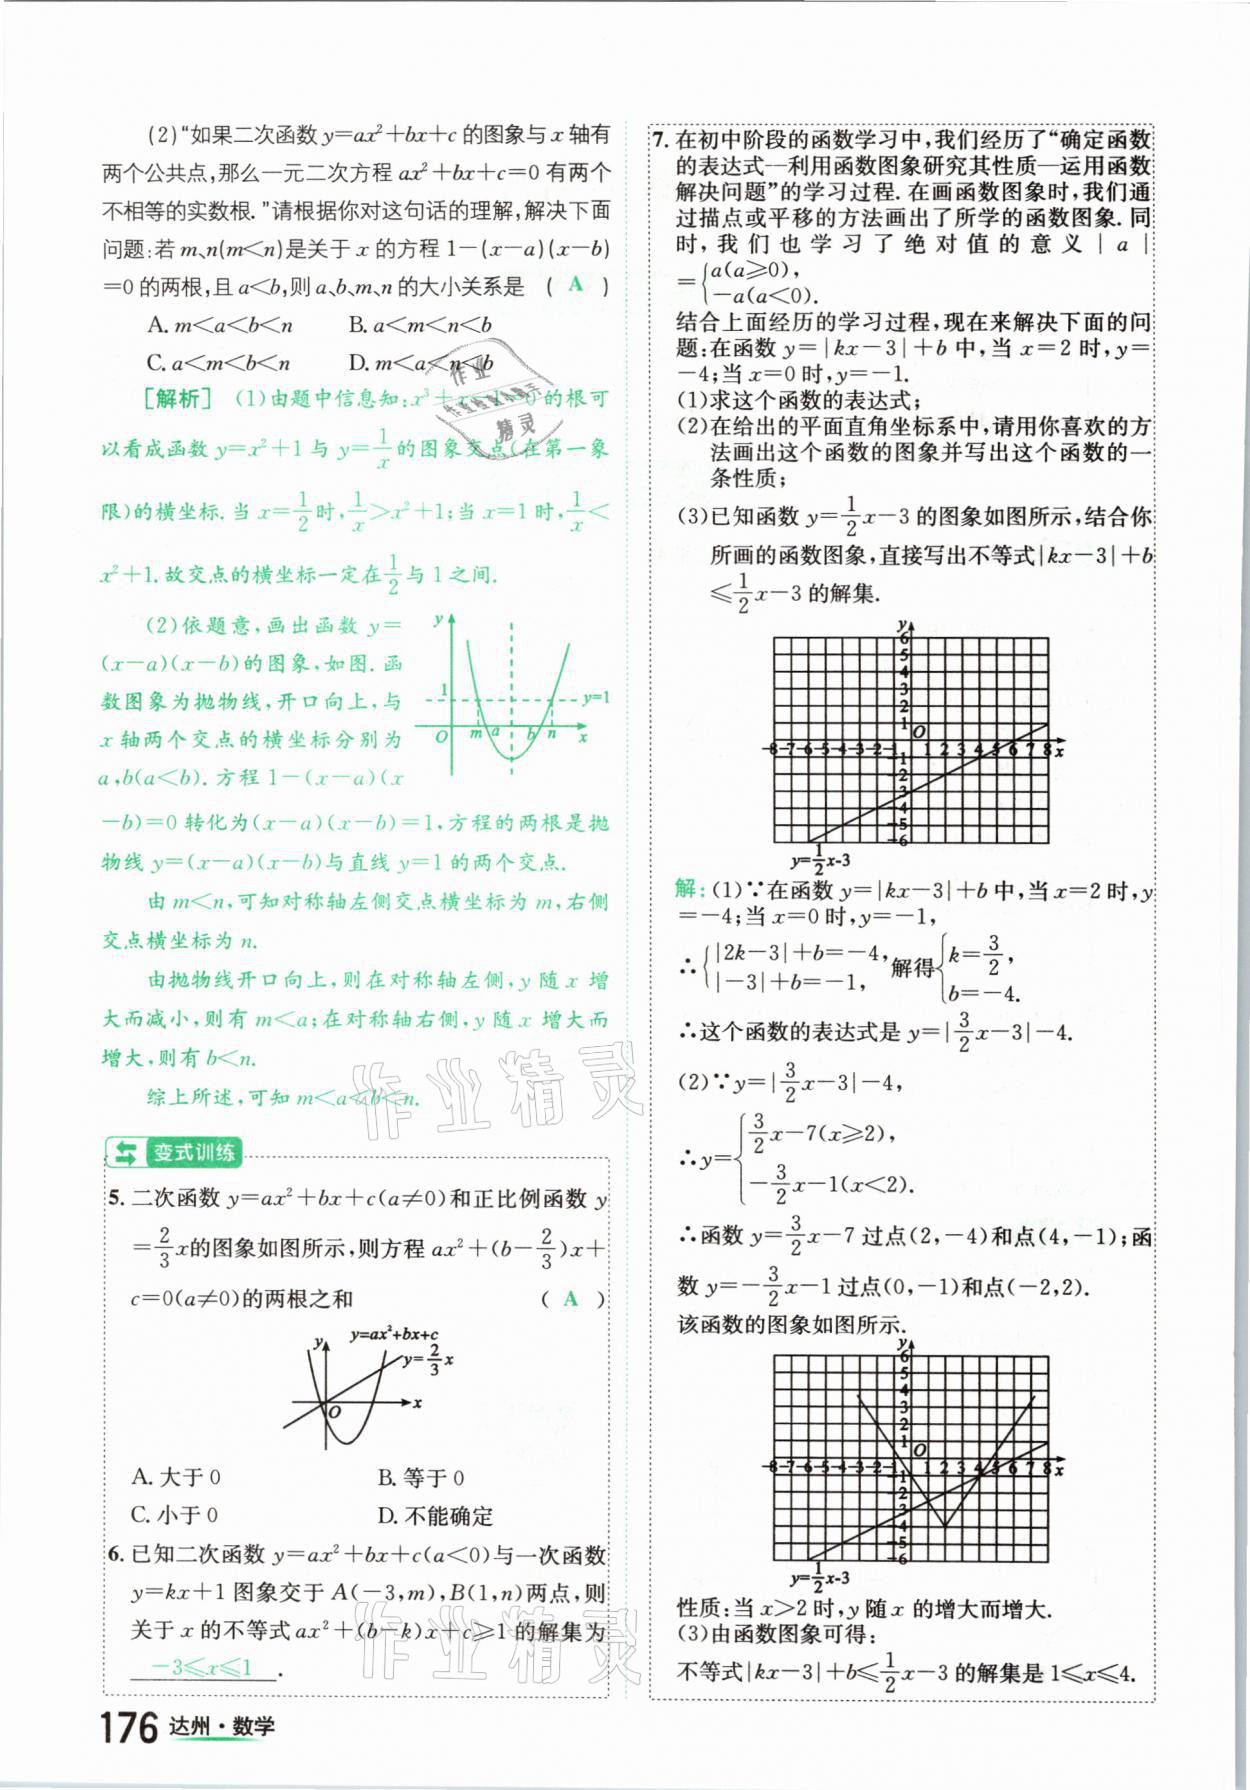 (2)“如果二次函数 y=ax²+bx+c 的图象与 x 轴有
两个公共点,那么一元二次方程 ax²+bx+c=0 有两个
不相等的实数根.”请根据你对这句话的理解,解决下面
问题:若 m、n(m<n)是关于 x 的方程 1-(x-a)(x-b)
=0 的两根,且 a<b,则 a、b、m、n 的大小关系是 ( A )
A. m<a<b<n B. a<m<n<b
C. a<m<b<n D. m<a<n<b
[解析] (1)由题中信息知:x³+x-1=0 的根可
以看成函数 y=x²+1 与 y=1/x 的图象交点(在第一象
限)的横坐标.当 x=1/2 时,1/x>x²+1;当 x=1 时,1/x<
x²+1.故交点的横坐标一定在 1/2 与 1 之间.
(2)依题意,画出函数 y=
(x-a)(x-b)的图象,如图.函
数图象为抛物线,开口向上,与
x 轴两个交点的横坐标分别为
a,b(a<b).方程 1-(x-a)(x
-b)=0 转化为(x-a)(x-b)=1,方程的两根是抛
物线 y=(x-a)(x-b)与直线 y=1 的两个交点.
y
1
y=1
O m a b n x
由 m<n,可知对称轴左侧交点横坐标为 m,右侧
交点横坐标为 n.
由抛物线开口向上,则在对称轴左侧,y 随 x 增
大而减小,则有 m<a;在对称轴右侧,y 随 x 增大而
增大,则有 b<n.
综上所述,可知 m<a<b<n.
变式训练
5. 二次函数 y=ax²+bx+c(a≠0)和正比例函数 y
=2/3x的图象如图所示,则方程 ax²+(b-2/3)x+
c=0(a≠0)的两根之和 ( A )
y y=ax²+bx+c
y=2/3 x
O x
A. 大于 0 B. 等于 0
C. 小于 0 D. 不能确定
6. 已知二次函数 y=ax²+bx+c(a<0)与一次函数
y=kx+1 图象交于 A(-3,m),B(1,n)两点,则
关于 x 的不等式 ax²+(b-k)x+c≥1 的解集为
-3≤x≤1 .
176 达州·数学
7. 在初中阶段的函数学习中,我们经历了“确定函数
的表达式—利用函数图象研究其性质—运用函数
解决问题”的学习过程.在画函数图象时,我们通
过描点或平移的方法画出了所学的函数图象.同
时,我们也学习了绝对值的意义|a|
={a(a≥0),
-a(a<0).
结合上面经历的学习过程,现在来解决下面的问
题:在函数 y=|kx-3|+b 中,当 x=2 时,y=
-4;当 x=0 时,y=-1.
(1)求这个函数的表达式;
(2)在给出的平面直角坐标系中,请用你喜欢的方
法画出这个函数的图象并写出这个函数的一
条性质;
(3)已知函数 y=1/2x-3 的图象如图所示,结合你
所画的函数图象,直接写出不等式|kx-3|+b
≤1/2x-3 的解集.
y
6
5
4
3
2
1
O
-8-7-6-5-4-3-2-1 1 2 3 4 5 6 7 8 x
-1
-2
-3
-4
-5
-6
y=1/2x-3
解:(1)∵在函数 y=|kx-3|+b 中,当 x=2 时,y
=-4;当 x=0 时,y=-1,
∴{|2k-3|+b=-4, |-3|+b=-1, 解得{k=3/2, b=-4.
∴这个函数的表达式是 y=|3/2x-3|-4.
(2)∵y=|3/2x-3|-4,
∴y={3/2x-7(x≥2),
-3/2x-1(x<2).
∴函数 y=3/2x-7 过点(2,-4)和点(4,-1);函
数 y=-3/2x-1 过点(0,-1)和点(-2,2).
该函数的图象如图所示.
y
6
5
4
3
2
1
O
-8-7-6-5-4-3-2-1 1 2 3 4 5 6 7 8 x
-1
-2
-3
-4
-5
-6
y=1/2x-3
性质:当 x>2 时,y 随 x 的增大而增大.
(3)由函数图象可得:
不等式|kx-3|+b≤1/2x-3 的解集是 1≤x≤4.
作业精灵
作业精灵
作业
精灵